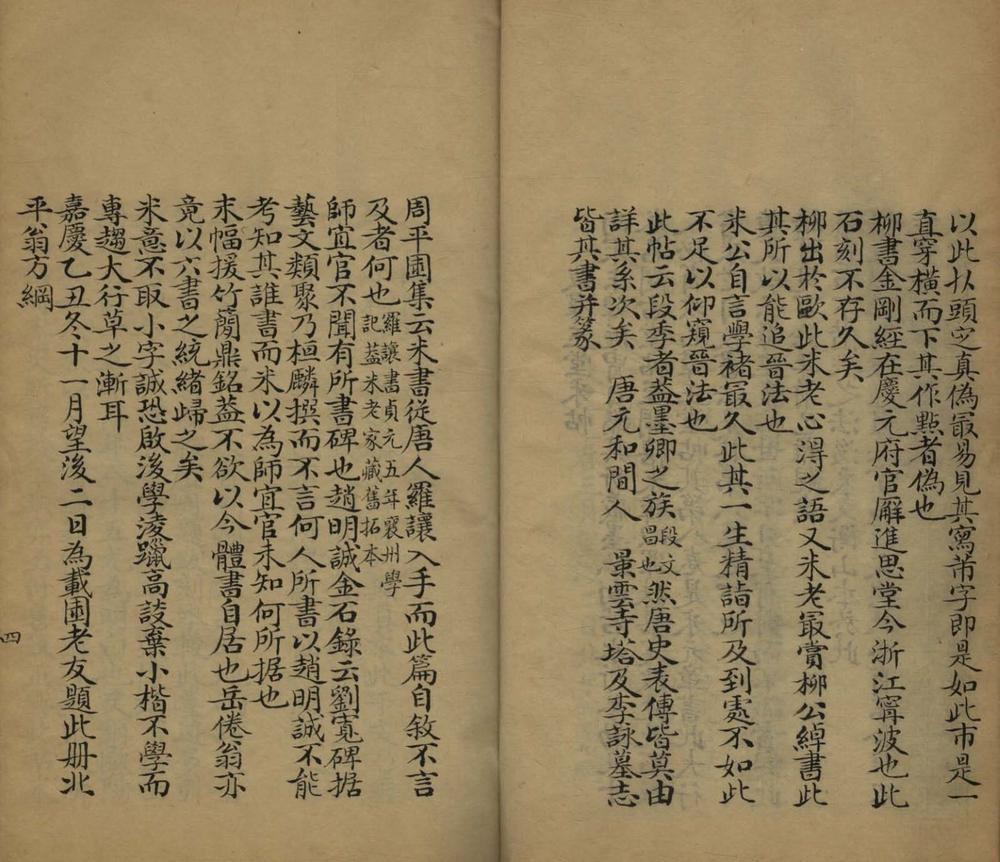 以此扒頭定真偽冣易見其寫芾字即是如此市是一
直穿橫而下其作點者偽也
柳書金剛經在慶元府官廨進思堂今浙江寧波也此
石刻不存久矣
柳出於歐此米老心得之語又米老冣賞柳公綽書此
其所以能追晉法也
米公自言學褚冣久此其一生精詣所及到處不如此
不足以仰窺晉法也
此帖云段季者葢墨卿之族段文昌也然唐史表傳皆莫由
詳其系次矣 唐元和間人 景雲寺塔及李詠墓志
皆其書并篆
周平園集云米書從唐人羅讓入手而此篇自敘不言
及者何也羅讓書貞元五年襄州學記葢米老家藏舊拓本
師宜官不聞有所書碑也趙明誠金石錄云劉寬碑据
藝文類聚乃桓麟撰而不言何人所書以趙明誠不能
考知其誰書而米以為師宜官未知何所据也
末幅援竹簡鼎銘葢不欲以今體書自居也岳倦翁亦
竟以六書之統緒歸之矣
米意不取小字誠恐啟後學淩躐高談棄小楷不學而
專趨大行草之漸耳
嘉慶乙丑冬十一月望後二日為載園老友題此册北
平翁方綱
四